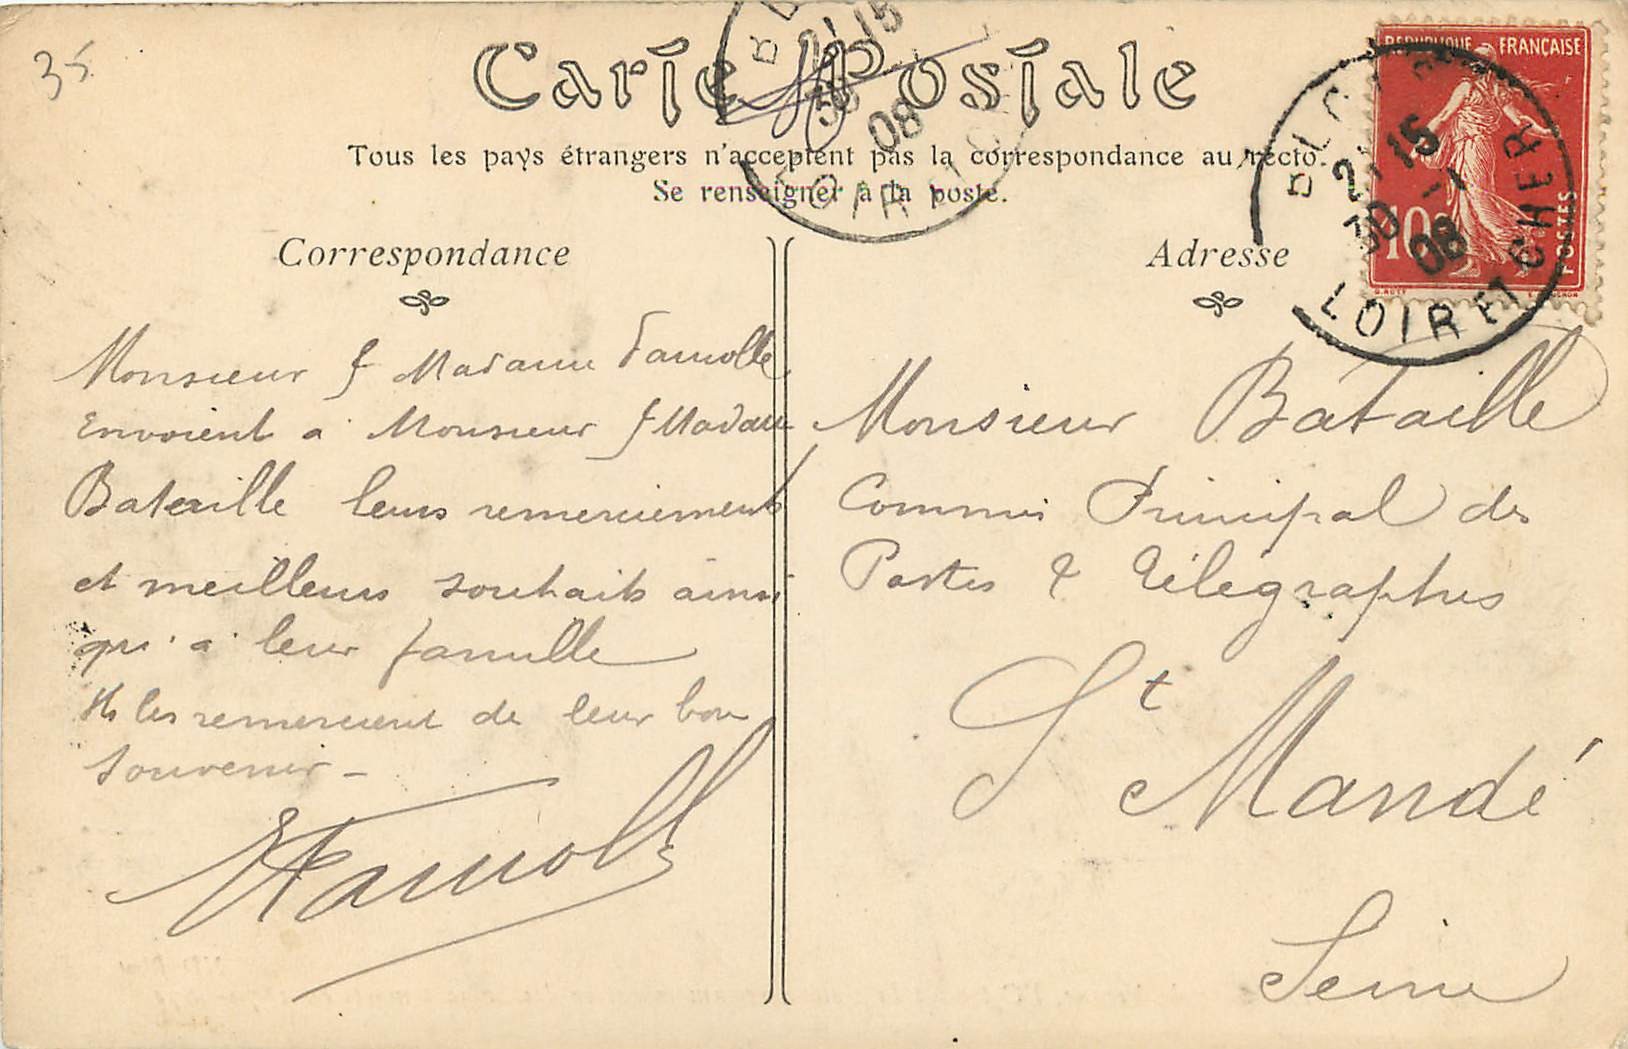 35
Carte Postale
Tous les pays étrangers n'acceptent pas la correspondance au recto.
Se renseigner à la poste.
Correspondance
Monsieur & Madame Famolle
Envoient à Monsieur & Madame
Bataille leurs remerciements
et meilleurs souhaits ainsi
qu'à leur famille
Ils les remercient de leur bon
souvenir -
Famolle
Adresse
Monsieur Bataille
Commis Principal des
Postes & Télégraphes
St Mandé
Seine
REPUBLIQUE FRANÇAISE
10c
POSTES
O. ROTY
BLOIS
21 15
30 -1
08
LOIR ET CHER
B
21 15
30
08
LOIR ET C